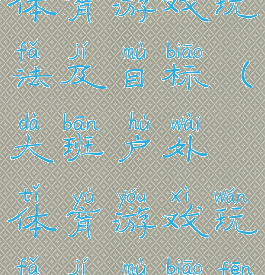 体育游戏玩
fǎ jí mù biāo
法及目标（
dà bān hù wài
大班户外
tǐ yù yóu xì wán
体育游戏玩
fǎ jí mù biāo fēn